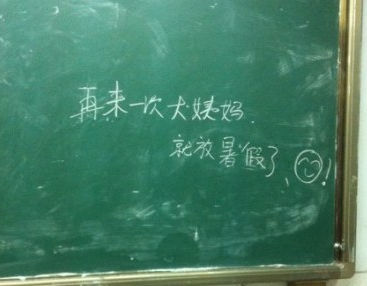 再来一次大姨妈.
就放暑假了、!